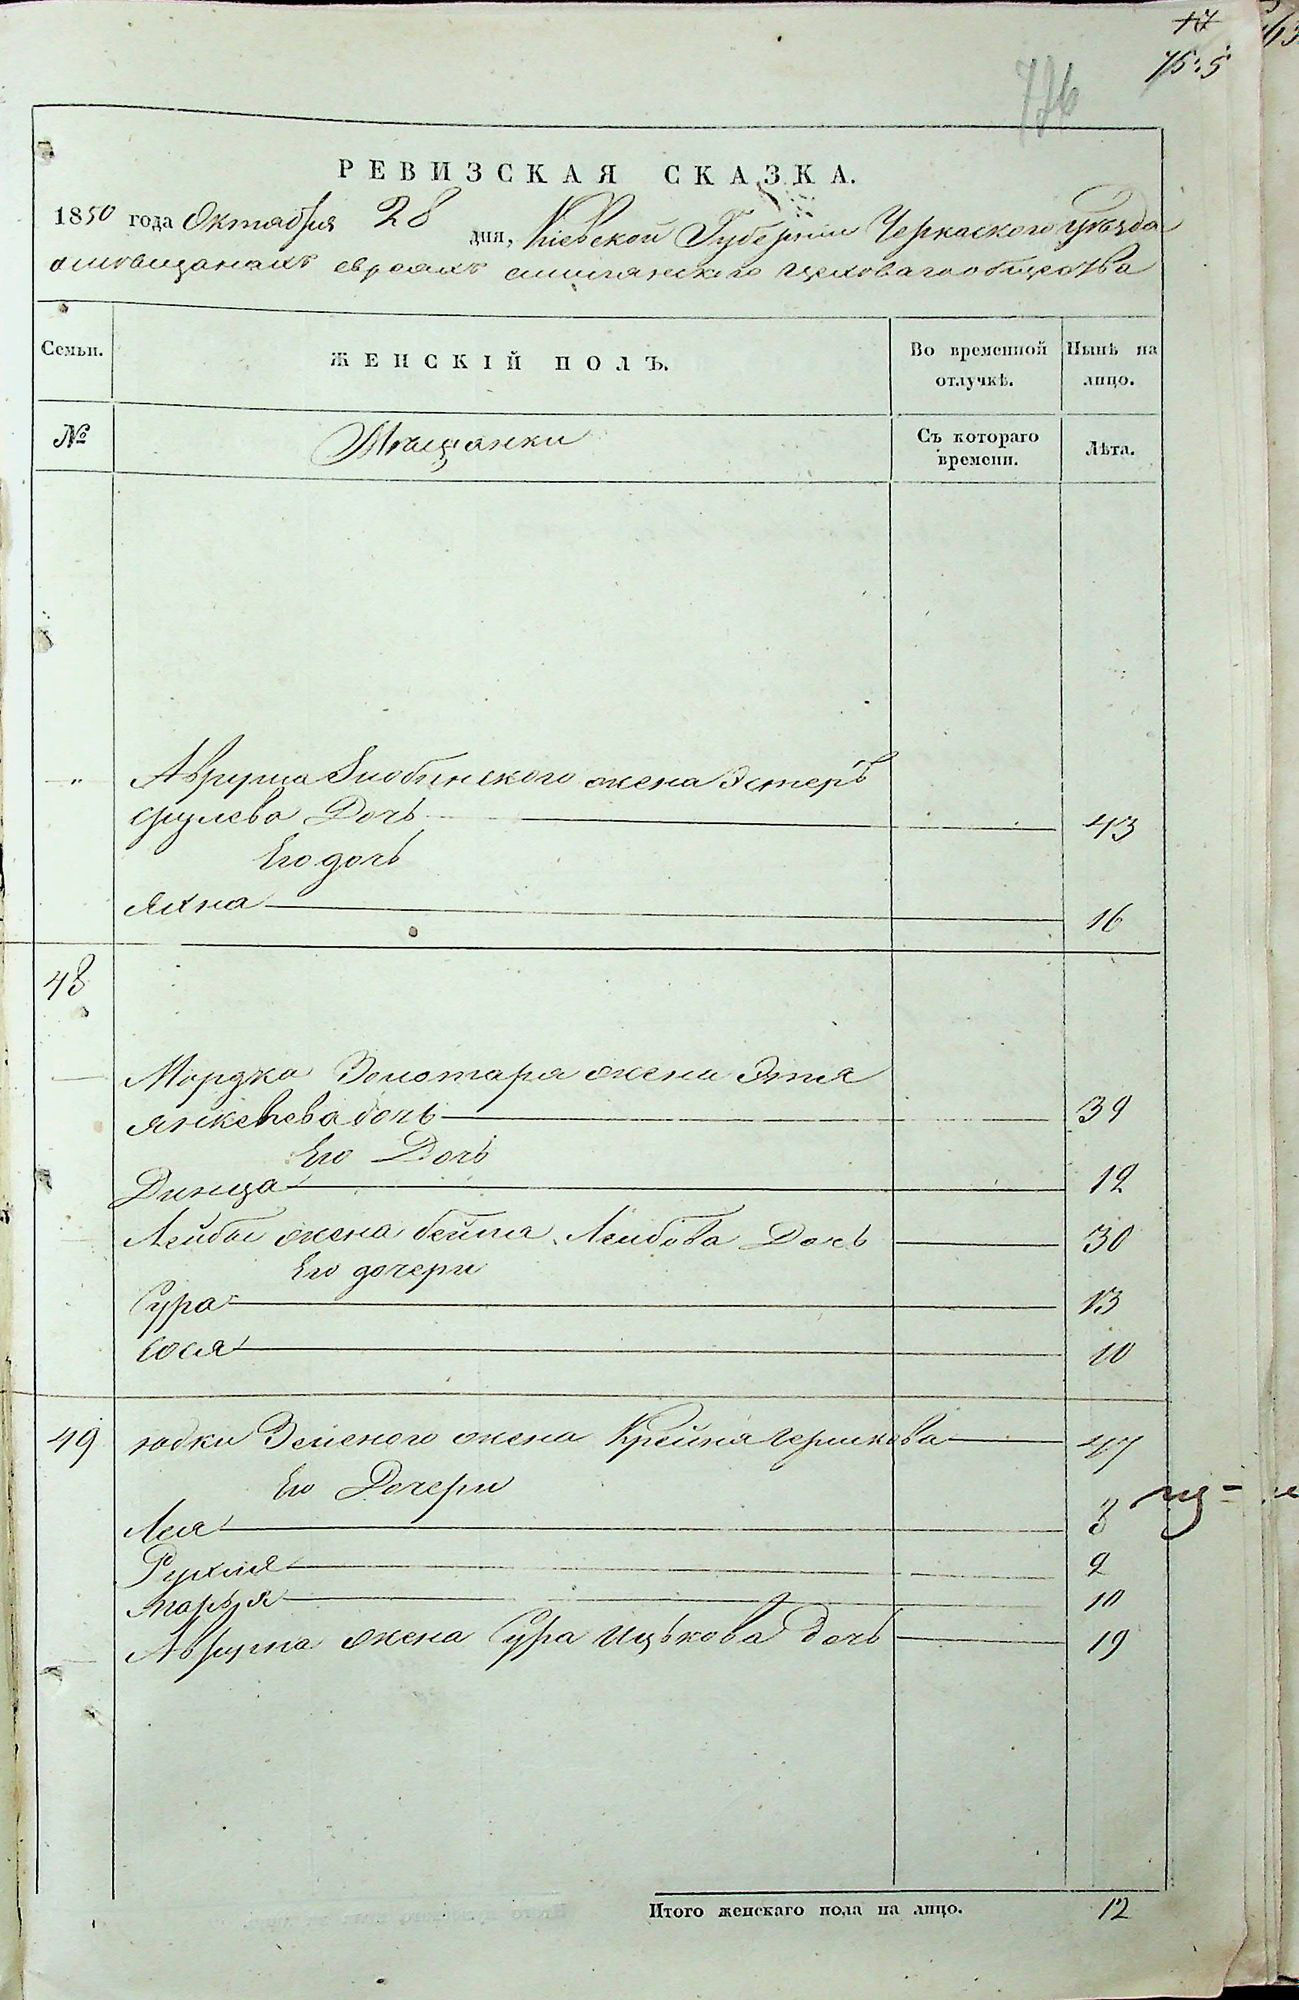 17
75:5
726
РЕВИЗСКАЯ СКАЗКА.
1850 года Октября 28 дня, Кіевской Губерніи Черкаскаго уѣзда
о мѣщанахъ евреяхъ цеховаго общества
Семьи.
ЖЕНСКІЙ ПОЛЪ.
Во временной отлучкѣ.
Нынѣ на лицо.
№
Мѣщанки
Съ котораго времени.
Лѣта.
"
Аврума жена Эстеръ
Срулева Дочь 43
Его дочь
Яхна 16
48
Мордка Золотаря жена Этля
Янкелева дочь 39
Его Дочь
Динца 12
Лейбы жена бейла Лейбова Дочь 30
Его дочери
Сура 13
Бося 10
49 юдки Зеленого жена Крейня Гершкова 47
Его Дочери
Лея 3
Рухля 2
Марья 10
Аврума жена Сура Ицькова дочь 19
Итого женскаго пола на лицо. 12